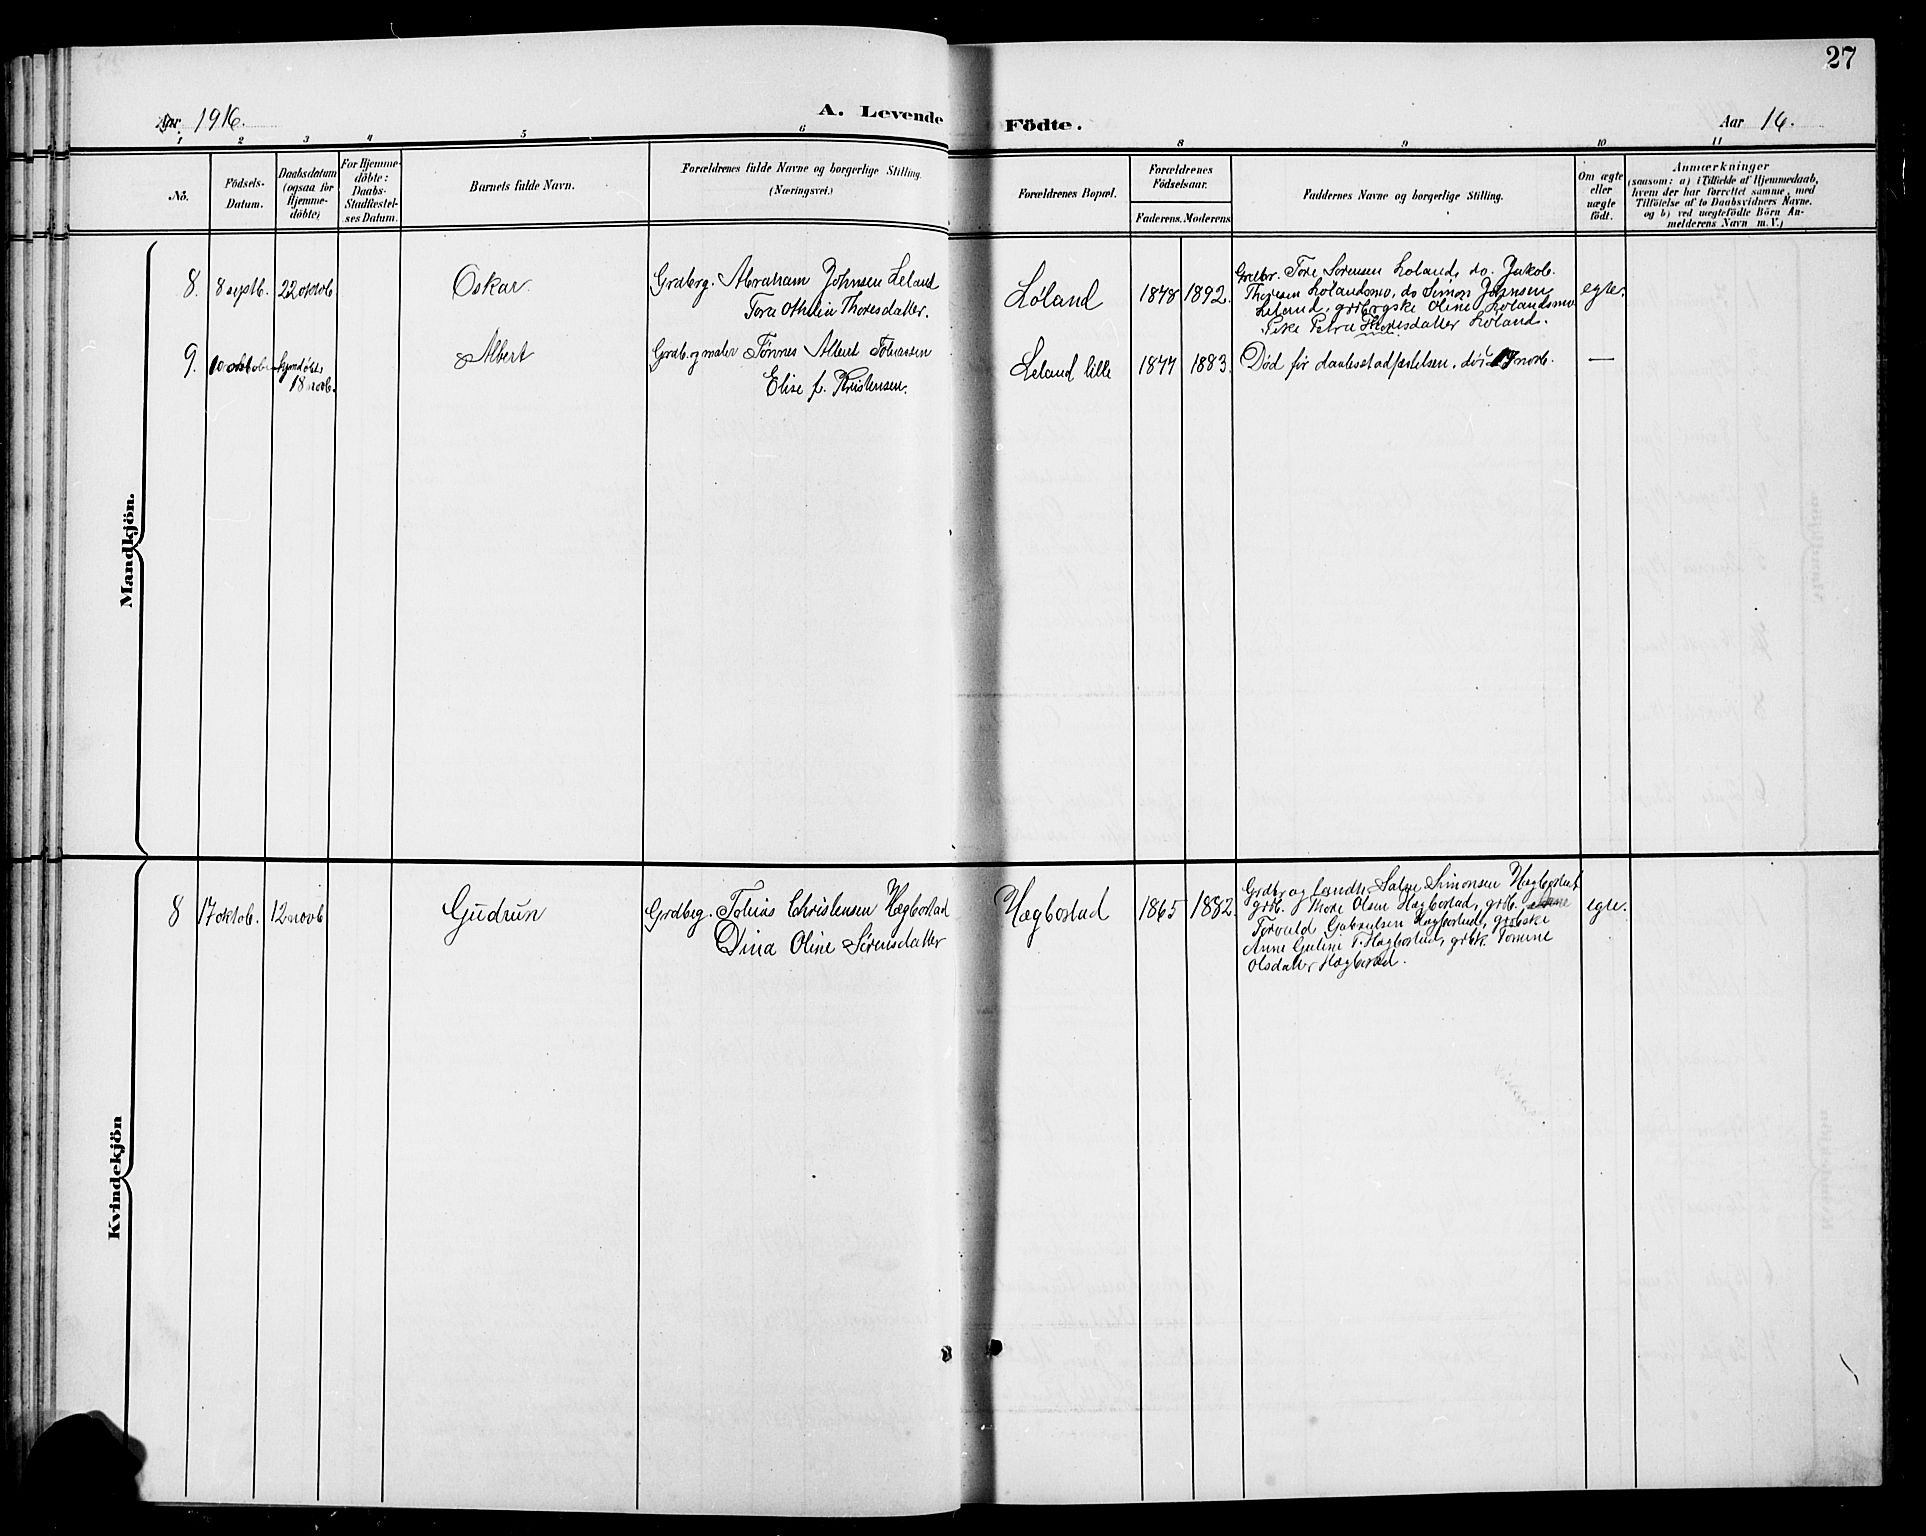 27
Aar 1916.
A. Levende Födte.
Aar 16.
1 2 3 4 5 6 8 9 10 11
No.
Födsels-
Datum.
Daabsdatum
(ogsaa for
Hjemme-
döbte)
For Hjemme-
döbte:
Daabs-
Stadfæstel-
ses Datum.
Barnets fulde Navn.
Forældrenes fulde Navne og borgerlige Stilling.
(Næringsvei.)
Forældrenes Bopæl.
Forældrenes
Födselsaar.
Faderens. Moderens.
Faddernes Navne og borgerlige Stilling.
Om ægte
eller
uægte
födt.
Anmærkninger
(saasom: a) i Tilfælde af Hjemmedaab,
hvem der har forrettet samme, med
Tilföielse af to Daabsvidners Navne.
og b) ved uægtefödte Börn An-
melderens Navn m. V.)
Mandkjön.
8. 8 septb. 22 oktob Oskar Grdbrg. Abraham Johnsen Leland
Tora Othelin Thoresdatter.
Løland 1878 1892.
Grdbr. Tore Sørensen Løland, do. Jakob
Thoresen Lølandsmo, do Simon Johnsen
Leland, grdbrgske Oline Lølandsmo
Pike Petra Thoresdatter Løland.
egte.
9. 10 oktob. hjemdøbt
18 novb.
Albert
Grdb. og maler Tønnes Albert Tobiassen
Elise f. Kristensen.
Leland lille 1877 1883. Død før daabsstadfæstelsen, død 17 novb. —
Kvindekjön
8 17 oktob. 12 novb Gudrun Grdbrg. Tobias Christensen Hægbostad
Dina Oline Sørensdatter
Hægbostad 1865 1882.
Grdbr og landh. Salve Simonsen Hægbostad
grdb. Thore Olsen Hægbostad, grdb.
Torvald Gabrielsen Hægbostad, grdbske
Anne Guline T. Hægbostad, grbk. Tomine
Olsdatter Hægbostad.
egte.